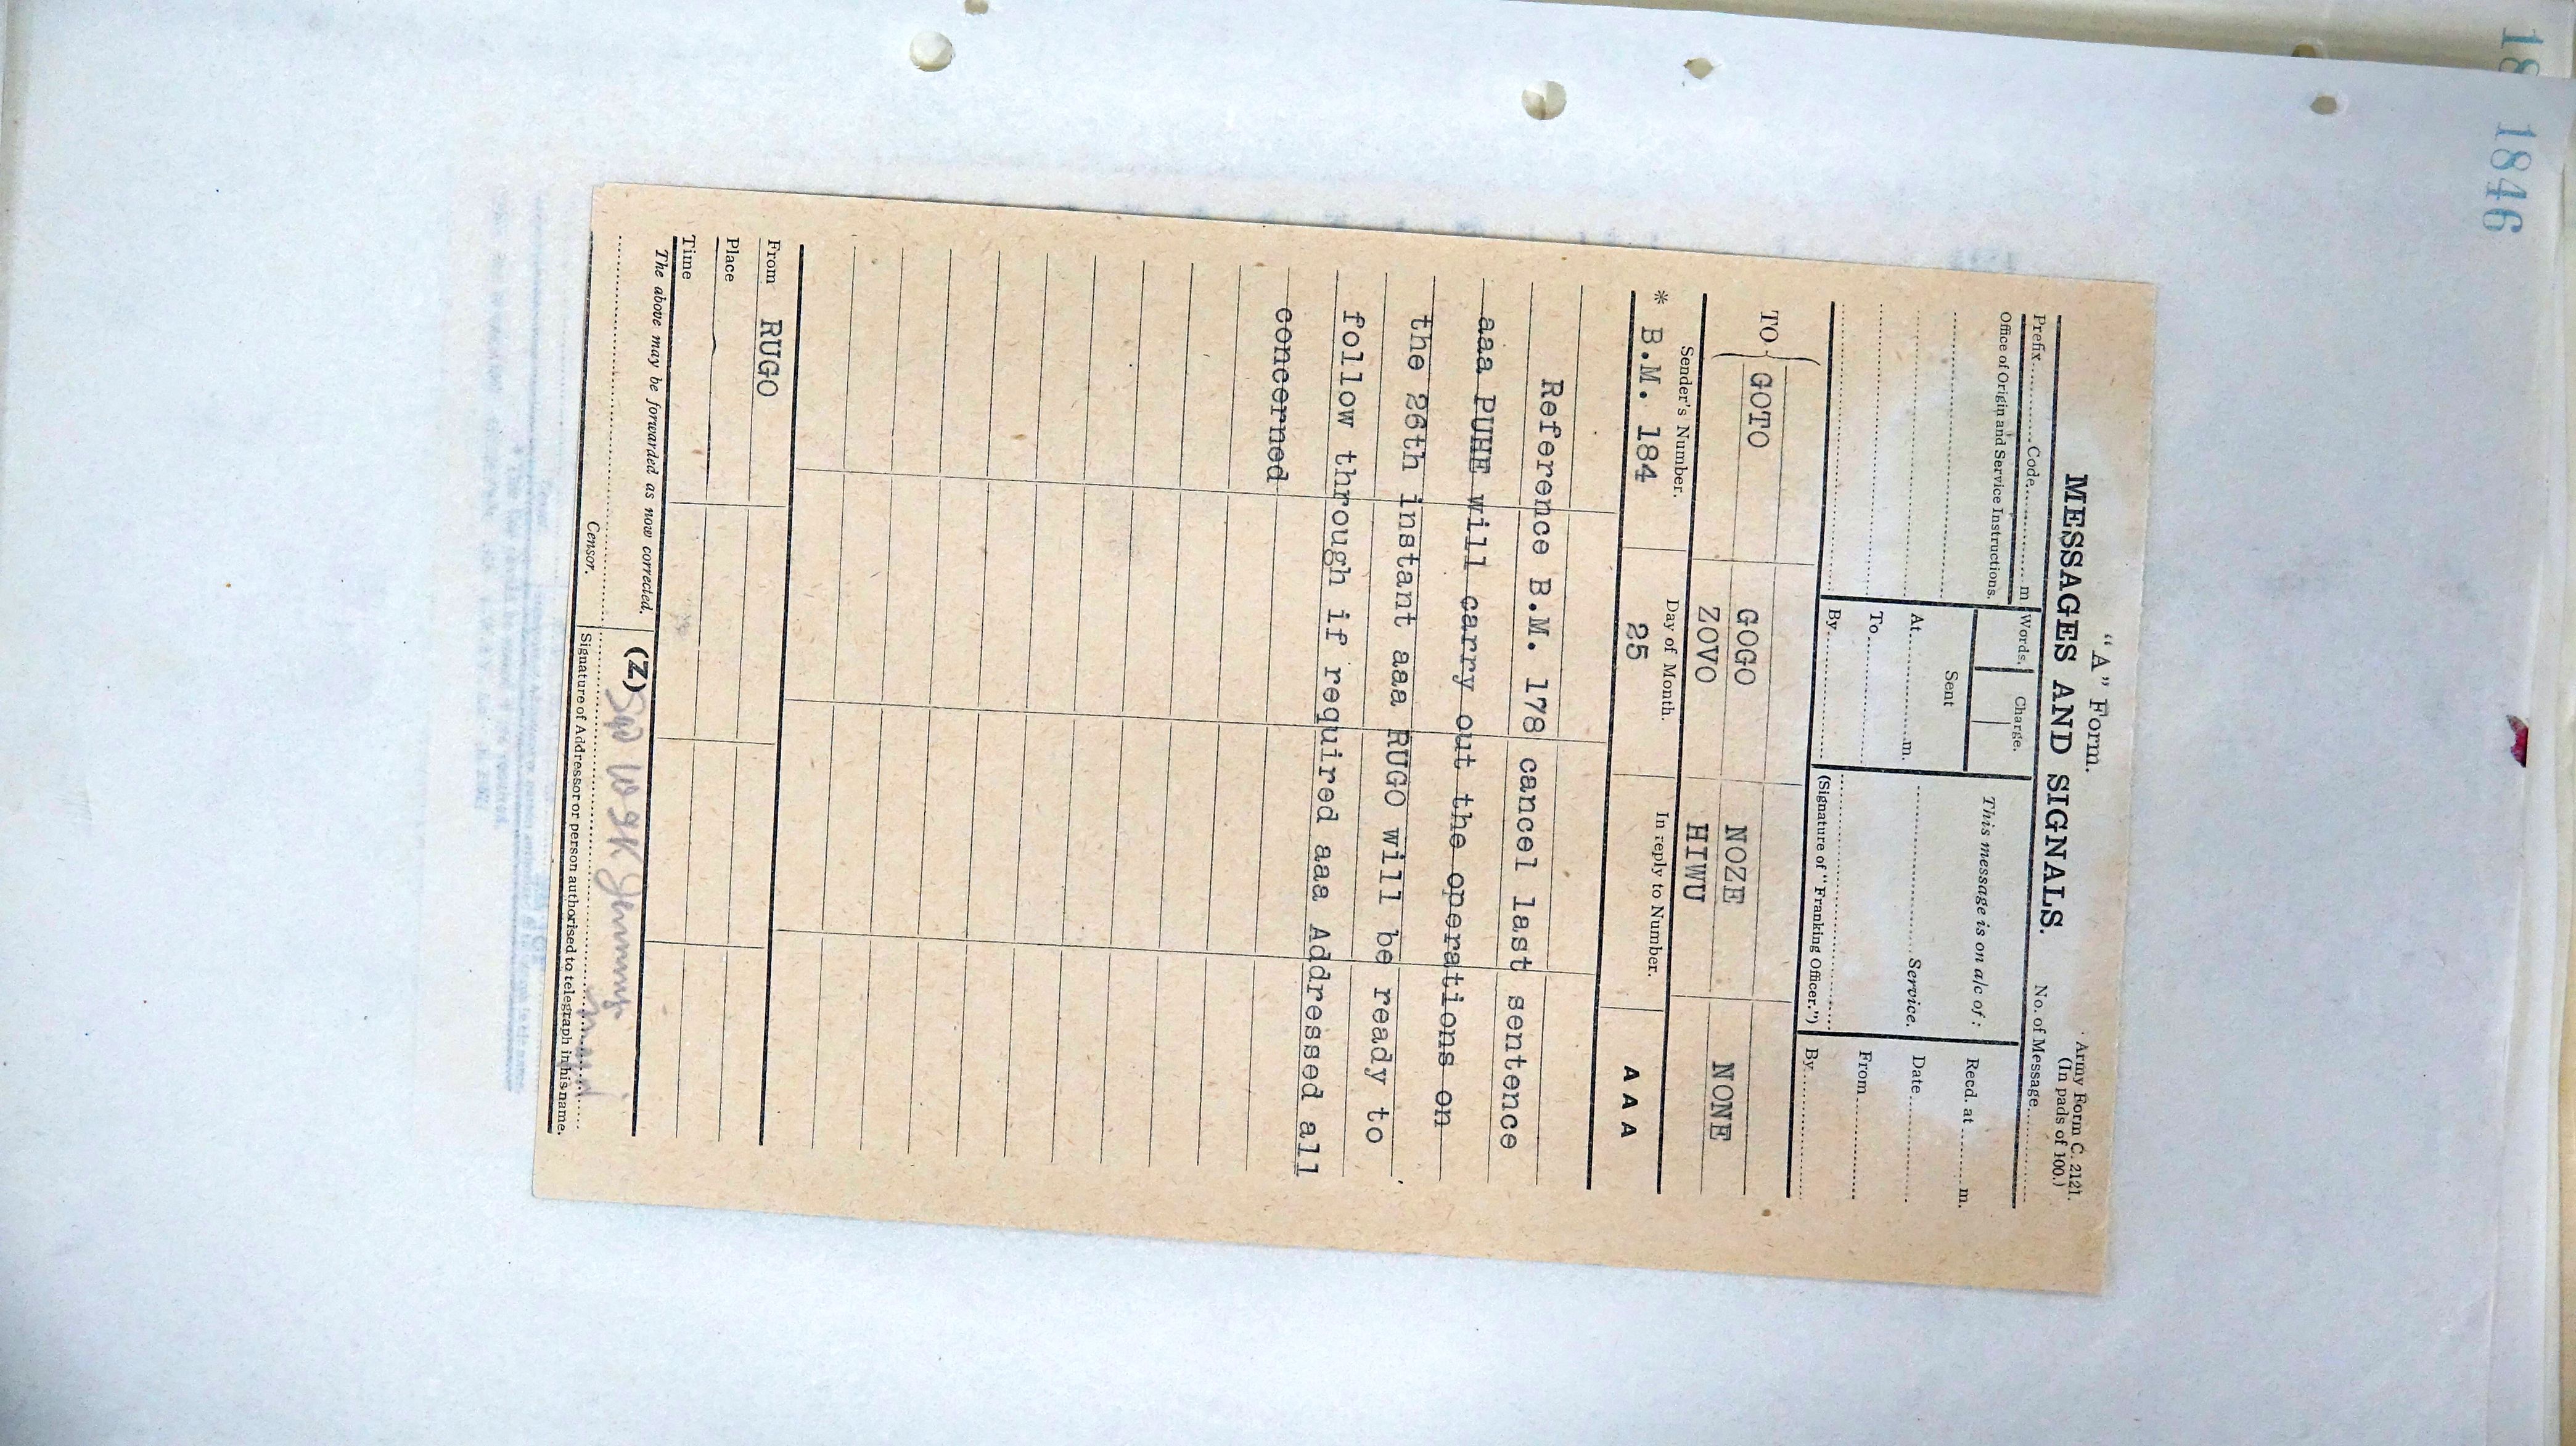 18
1846
"A" Form.
Army Form C. 2121.
(In pads of 100.)
MESSAGES AND SIGNALS.
No. of Message
Prefix Code m
Words.
Charge.
This message is on a/c of :
Recd. at m.
Office of Origin and Service Instructions.
Sent
At m.
Service.
Date
To
From
By
(Signature of "Franking Officer.")
By
TO GOTO GOGO NOZE NONE
ZOVO HIWU
Sender's Number. Day of Month. In reply to Number.
* B.M. 184 25 A A A
Reference B.M. 178 cancel last sentence
aaa PUHE will carry out the operations on
the 26th instant aaa RUGO will be ready to
follow through if required aaa Addressed all
concerned
From RUGO
Place
Time
The above may be forwarded as now corrected. (Z)
Censor.
Signature of Addressor or person authorised to telegraph in his name.